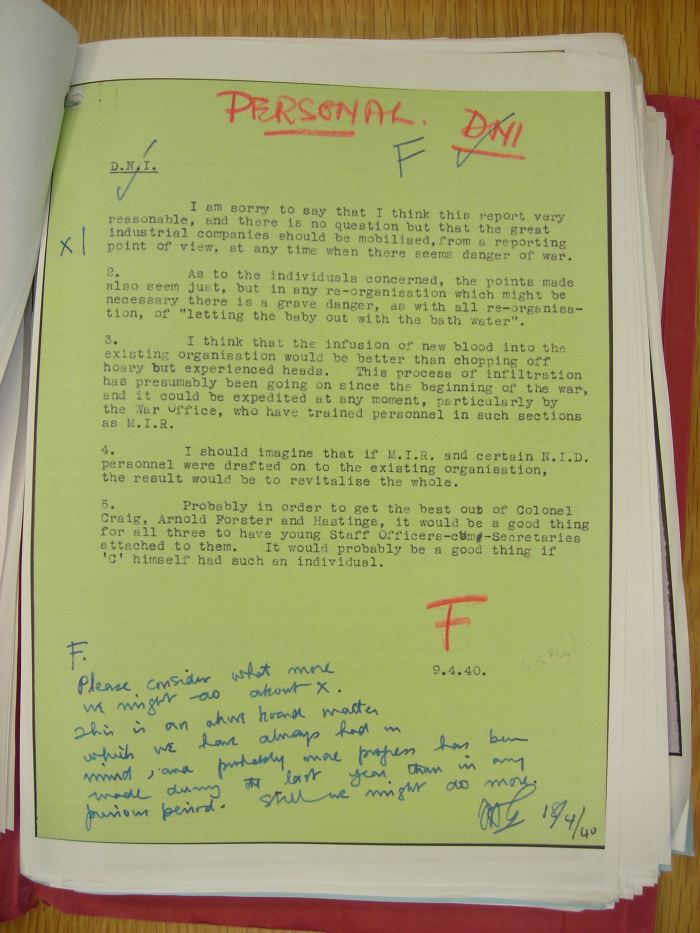 PERSONAL.
DNI
F
D.N.I.
I am sorry to say that I think this report very
reasonable, and there is no question but that the great
industrial companies should be mobilised, from a reporting
point of view, at any time when there seems danger of war.
x |
2. As to the individuals concerned, the points made
also seem just, but in any re-organisation which might be
necessary there is a grave danger, as with all re-organisa-
tion, of "letting the baby out with the bath water".
3. I think that the infusion of new blood into the
existing organisation would be better than chopping off
hoary but experienced heads. This process of infiltration
has presumably been going on since the beginning of the war,
and it could be expedited at any moment, particularly by
the War Office, who have trained personnel in such sections
as M.I.R.
4. I should imagine that if M.I.R. and certain N.I.D.
personnel were drafted on to the existing organisation,
the result would be to revitalise the whole.
5. Probably in order to get the best out of Colonel
Craig, Arnold Forster and Hastings, it would be a good thing
for all three to have young Staff Officers-cum-Secretaries
attached to them. It would probably be a good thing if
'C' himself had such an individual.
F
9.4.40.
F.
Please consider what more
we might do about X.
This is an above board matter
which we have always had in
mind, and probably more progress has been
made during the last year than in any
previous period. Still we might do more.
18/4/40